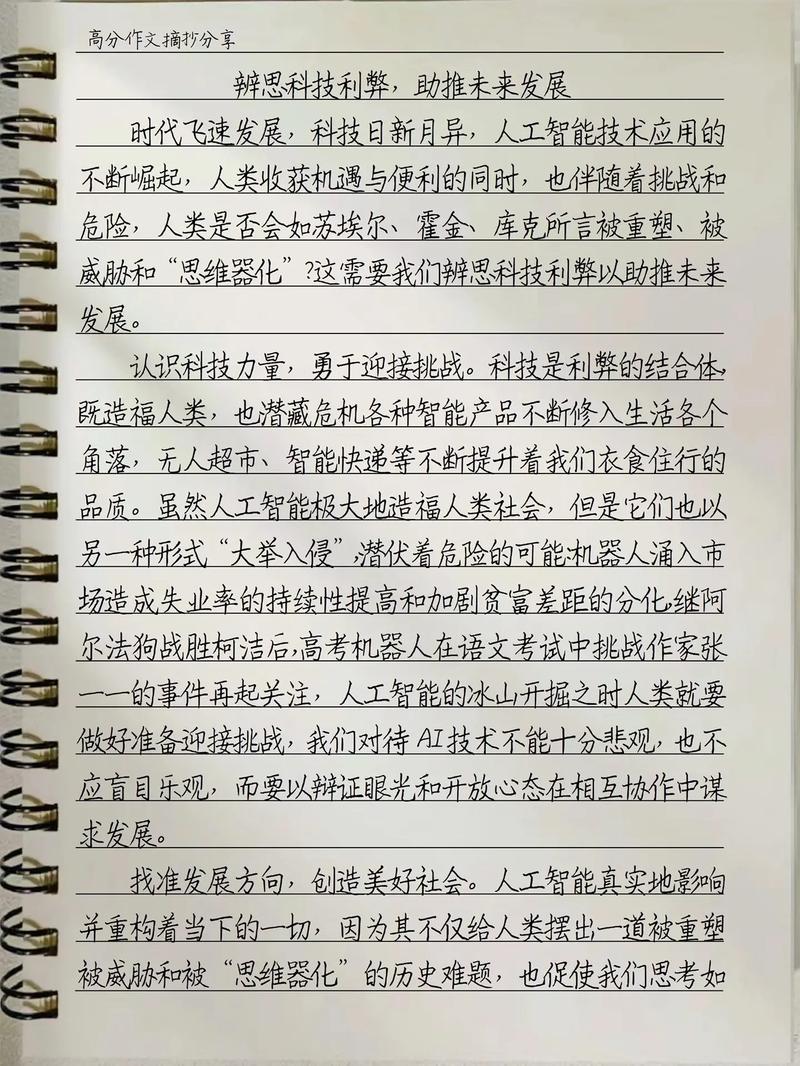 高分作文摘抄分享
辨思科技利弊，助推未来发展
时代飞速发展，科技日新月异，人工智能技术应用的
不断崛起，人类收获机遇与便利的同时，也伴随着挑战和
危险，人类是否会如苏埃尔、霍金、库克所言被重塑、被
威胁和“思维器化”?这需要我们辨思科技利弊以助推未来
发展。
认识科技力量，勇于迎接挑战。科技是利弊的结合体，
既造福人类，也潜藏危机各种智能产品不断修入生活各个
角落，无人超市、智能快递等不断提升着我们衣食住行的
品质。虽然人工智能极大地造福人类社会，但是它们也以
另一种形式“大举入侵”，潜伏着危险的可能:机器人涌入市
场造成失业率的持续性提高和加剧贫富差距的分化，继阿
尔法狗战胜柯洁后，高考机器人在语文考试中挑战作家张
一一的事件再起关注，人工智能的冰山开掘之时人类就要
做好准备迎接挑战，我们对待AI技术不能十分悲观，也不
应盲目乐观，而要以辩证眼光和开放心态在相互协作中谋
求发展。
找准发展方向，创造美好社会。人工智能真实地影响
并重构着当下的一切，因为其不仅给人类摆出一道被重塑
被威胁和被“思维器化”的历史难题，也促使我们思考如